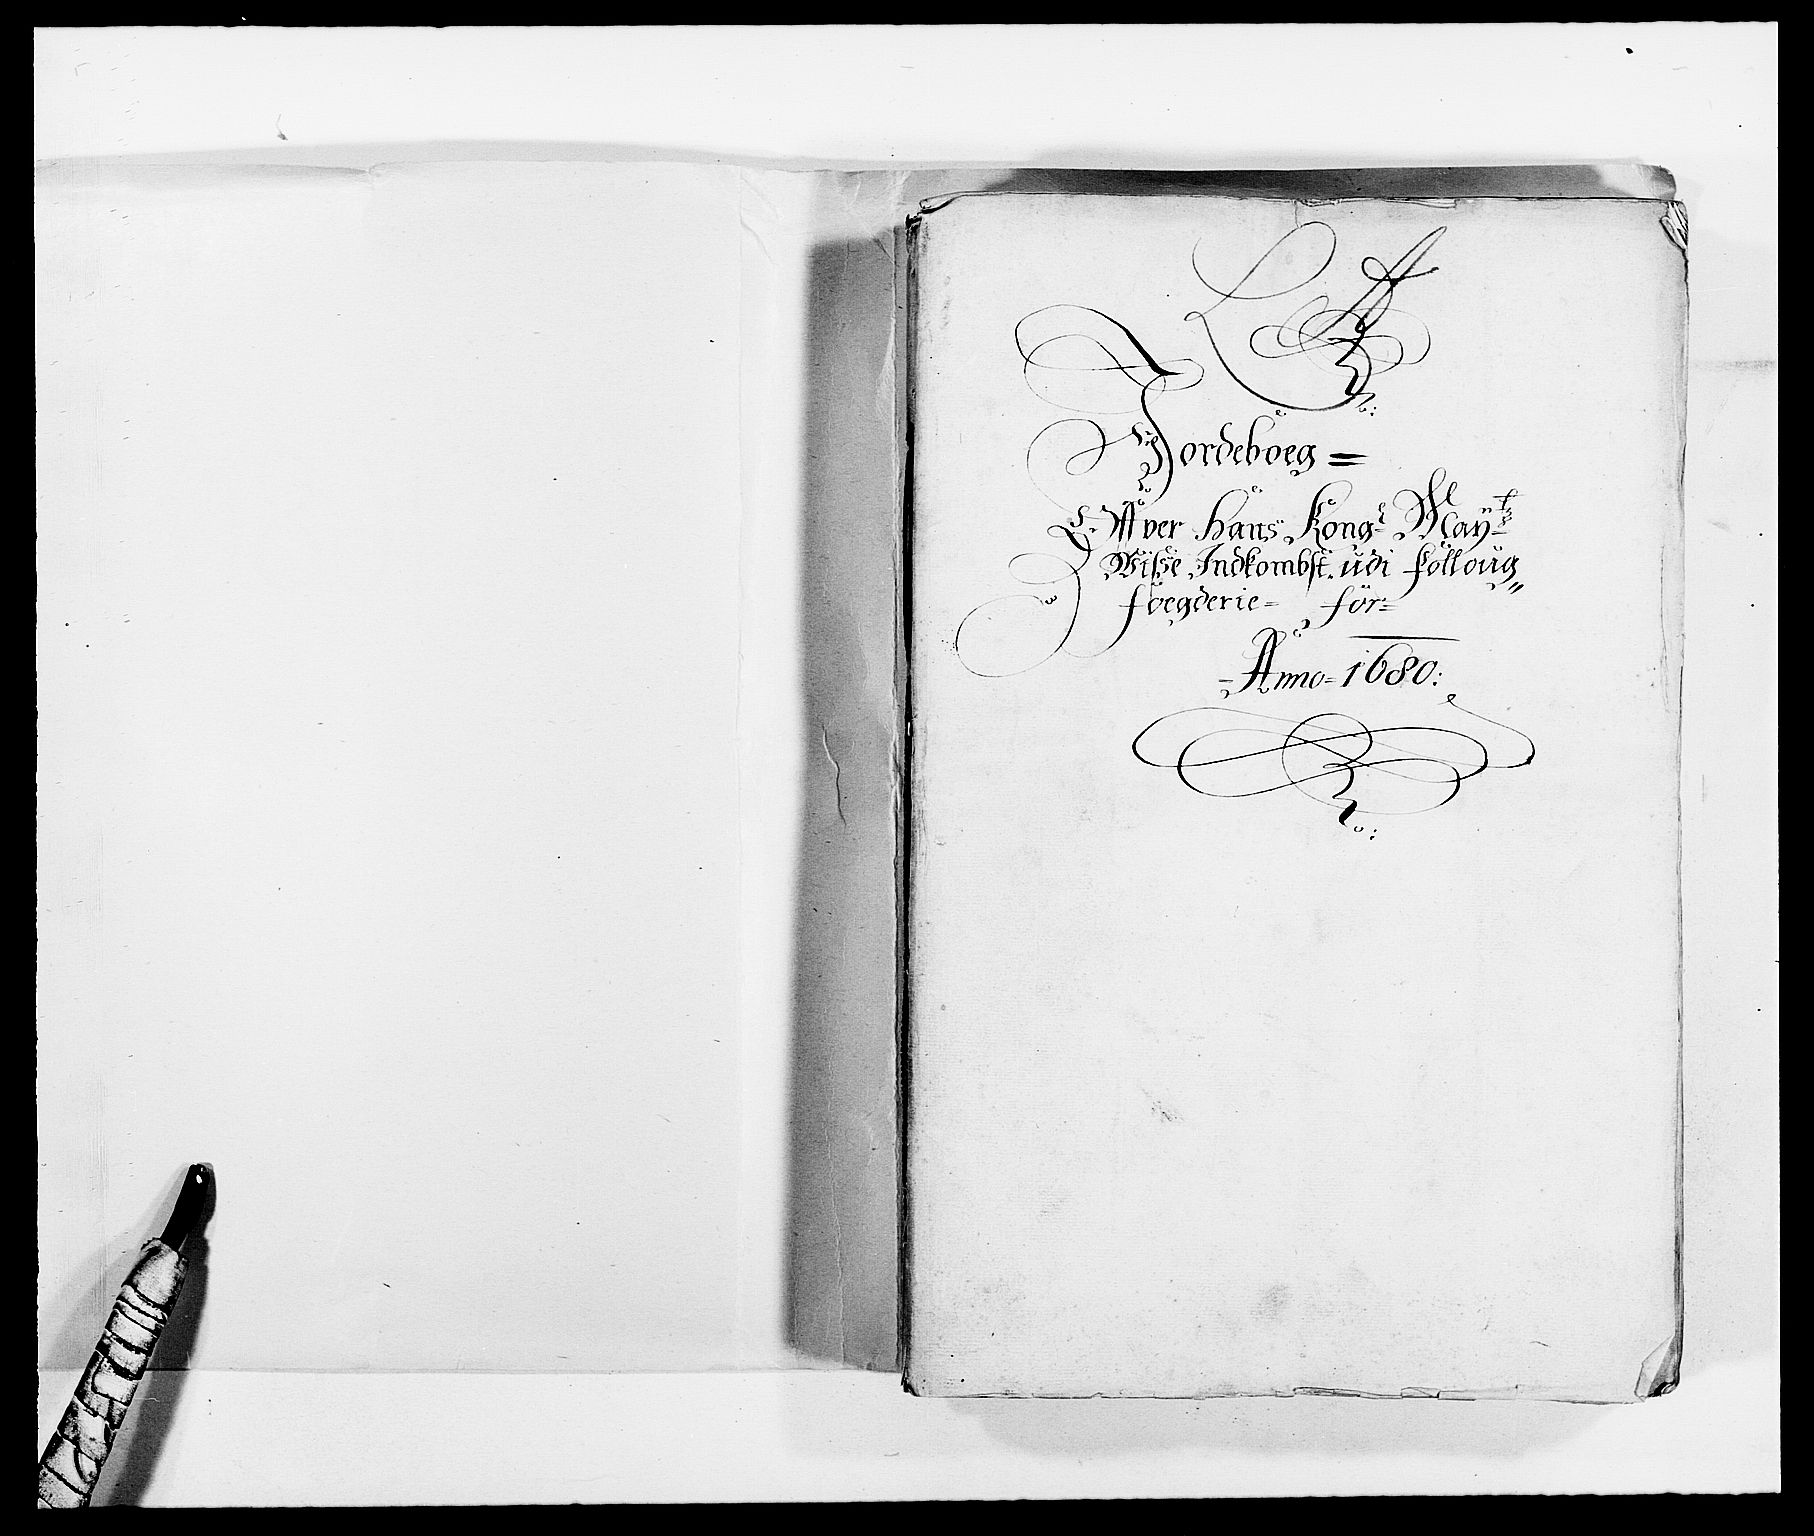 L A
Jordeboeg =
Offver Hans Kong: Maÿtz
Wiße Indkombst udi Folloug
foegderie= för=
Anno= 1680: